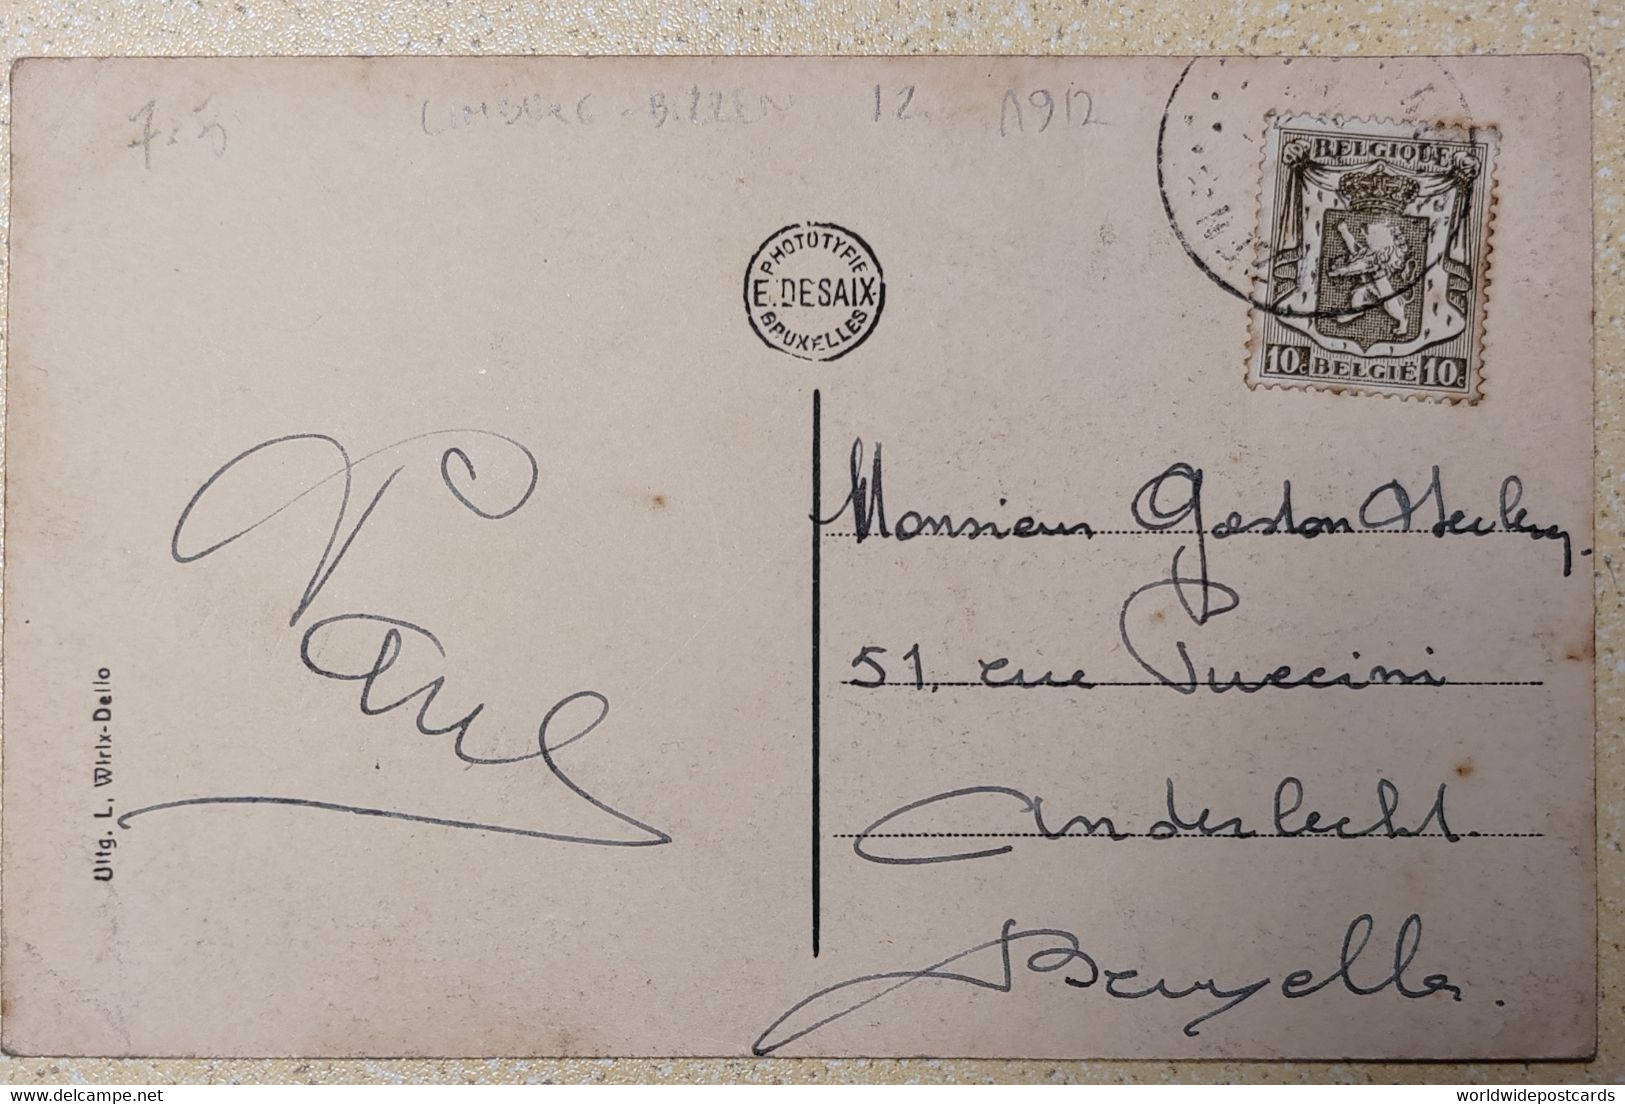 7.5 LIMBURG - BILZEN 12. 1912
PHOTOTYPIE
E. DESAIX
BRUXELLES
BELGIQUE
10c BELGIË 10c
Paul
Uitg. L. Wirix-Dello
Monsieur Gaston
51, rue Puccini
Anderlecht.
Bruxelles.
delcampe.net
worldwidepostcards